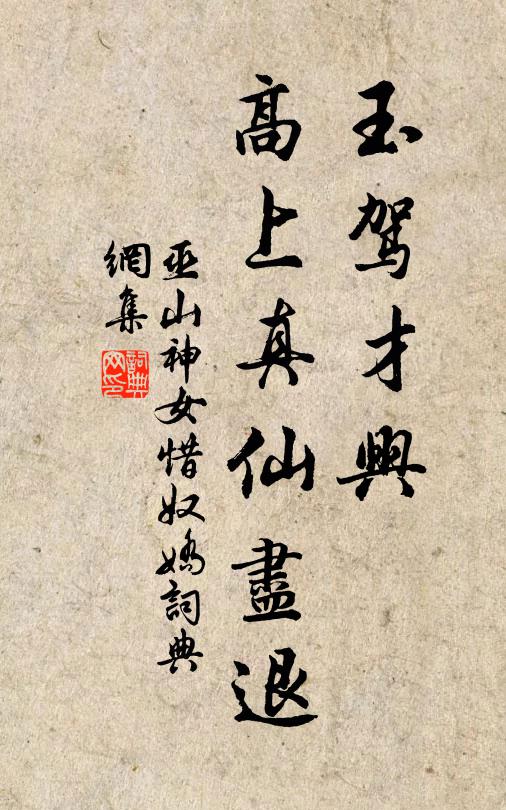 玉駕才興
高上真仙盡退
巫山神女惜奴嬌詞典
網集
詞典
网印